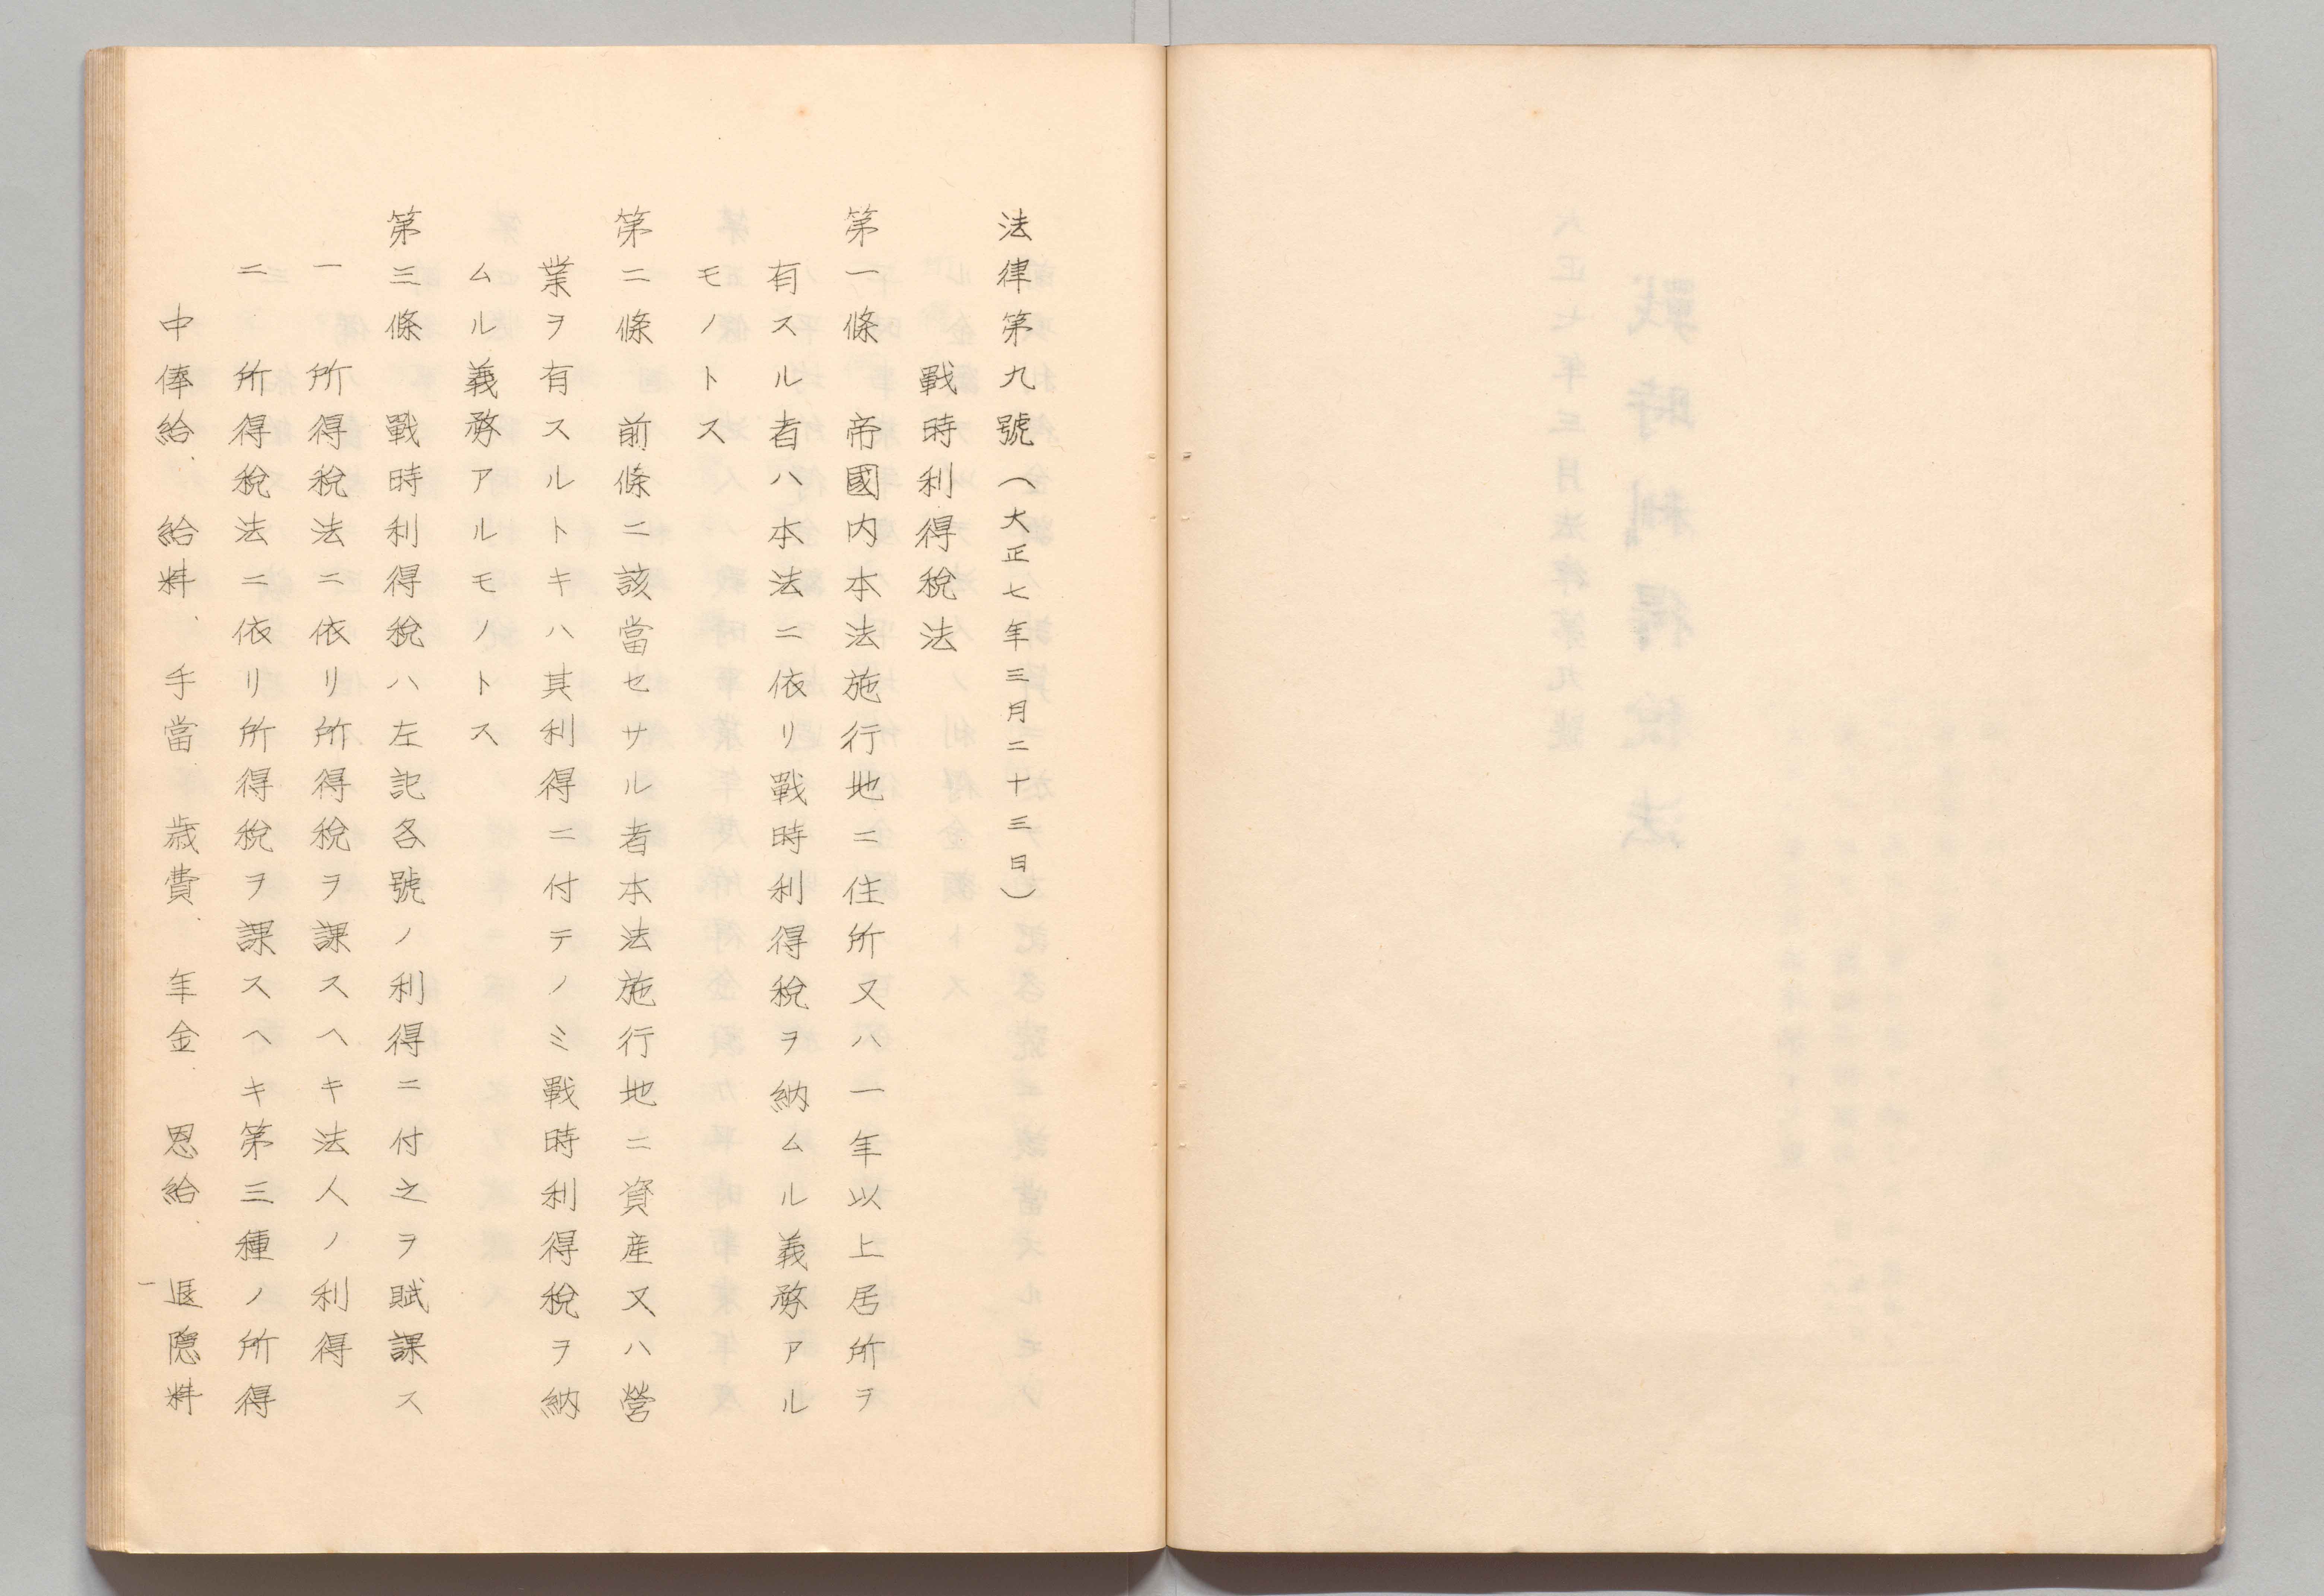 法律第九號(大正七年三月二十三日)
戰時利得稅法
第一條　帝國内本法施行地ニ住所又ハ一年以上居所ヲ
有スル者ハ本法ニ依リ戰時利得稅ヲ納ムル義務アル
モノトス
第二條　前條ニ該當セサル者本法施行地ニ資産又ハ營
業ヲ有スルトキハ其利得ニ付テノミ戰時利得稅ヲ納
ムル義務アルモノトス
第三條　戰時利得稅ハ左記各號ノ利得ニ付之ヲ賦課ス
一　所得稅法ニ依リ所得稅ヲ課スヘキ法人ノ利得
二　所得稅法ニ依リ所得稅ヲ課スヘキ第三種ノ所得
中俸給、給料、手當、歳費、年金、恩給、退隱料
一